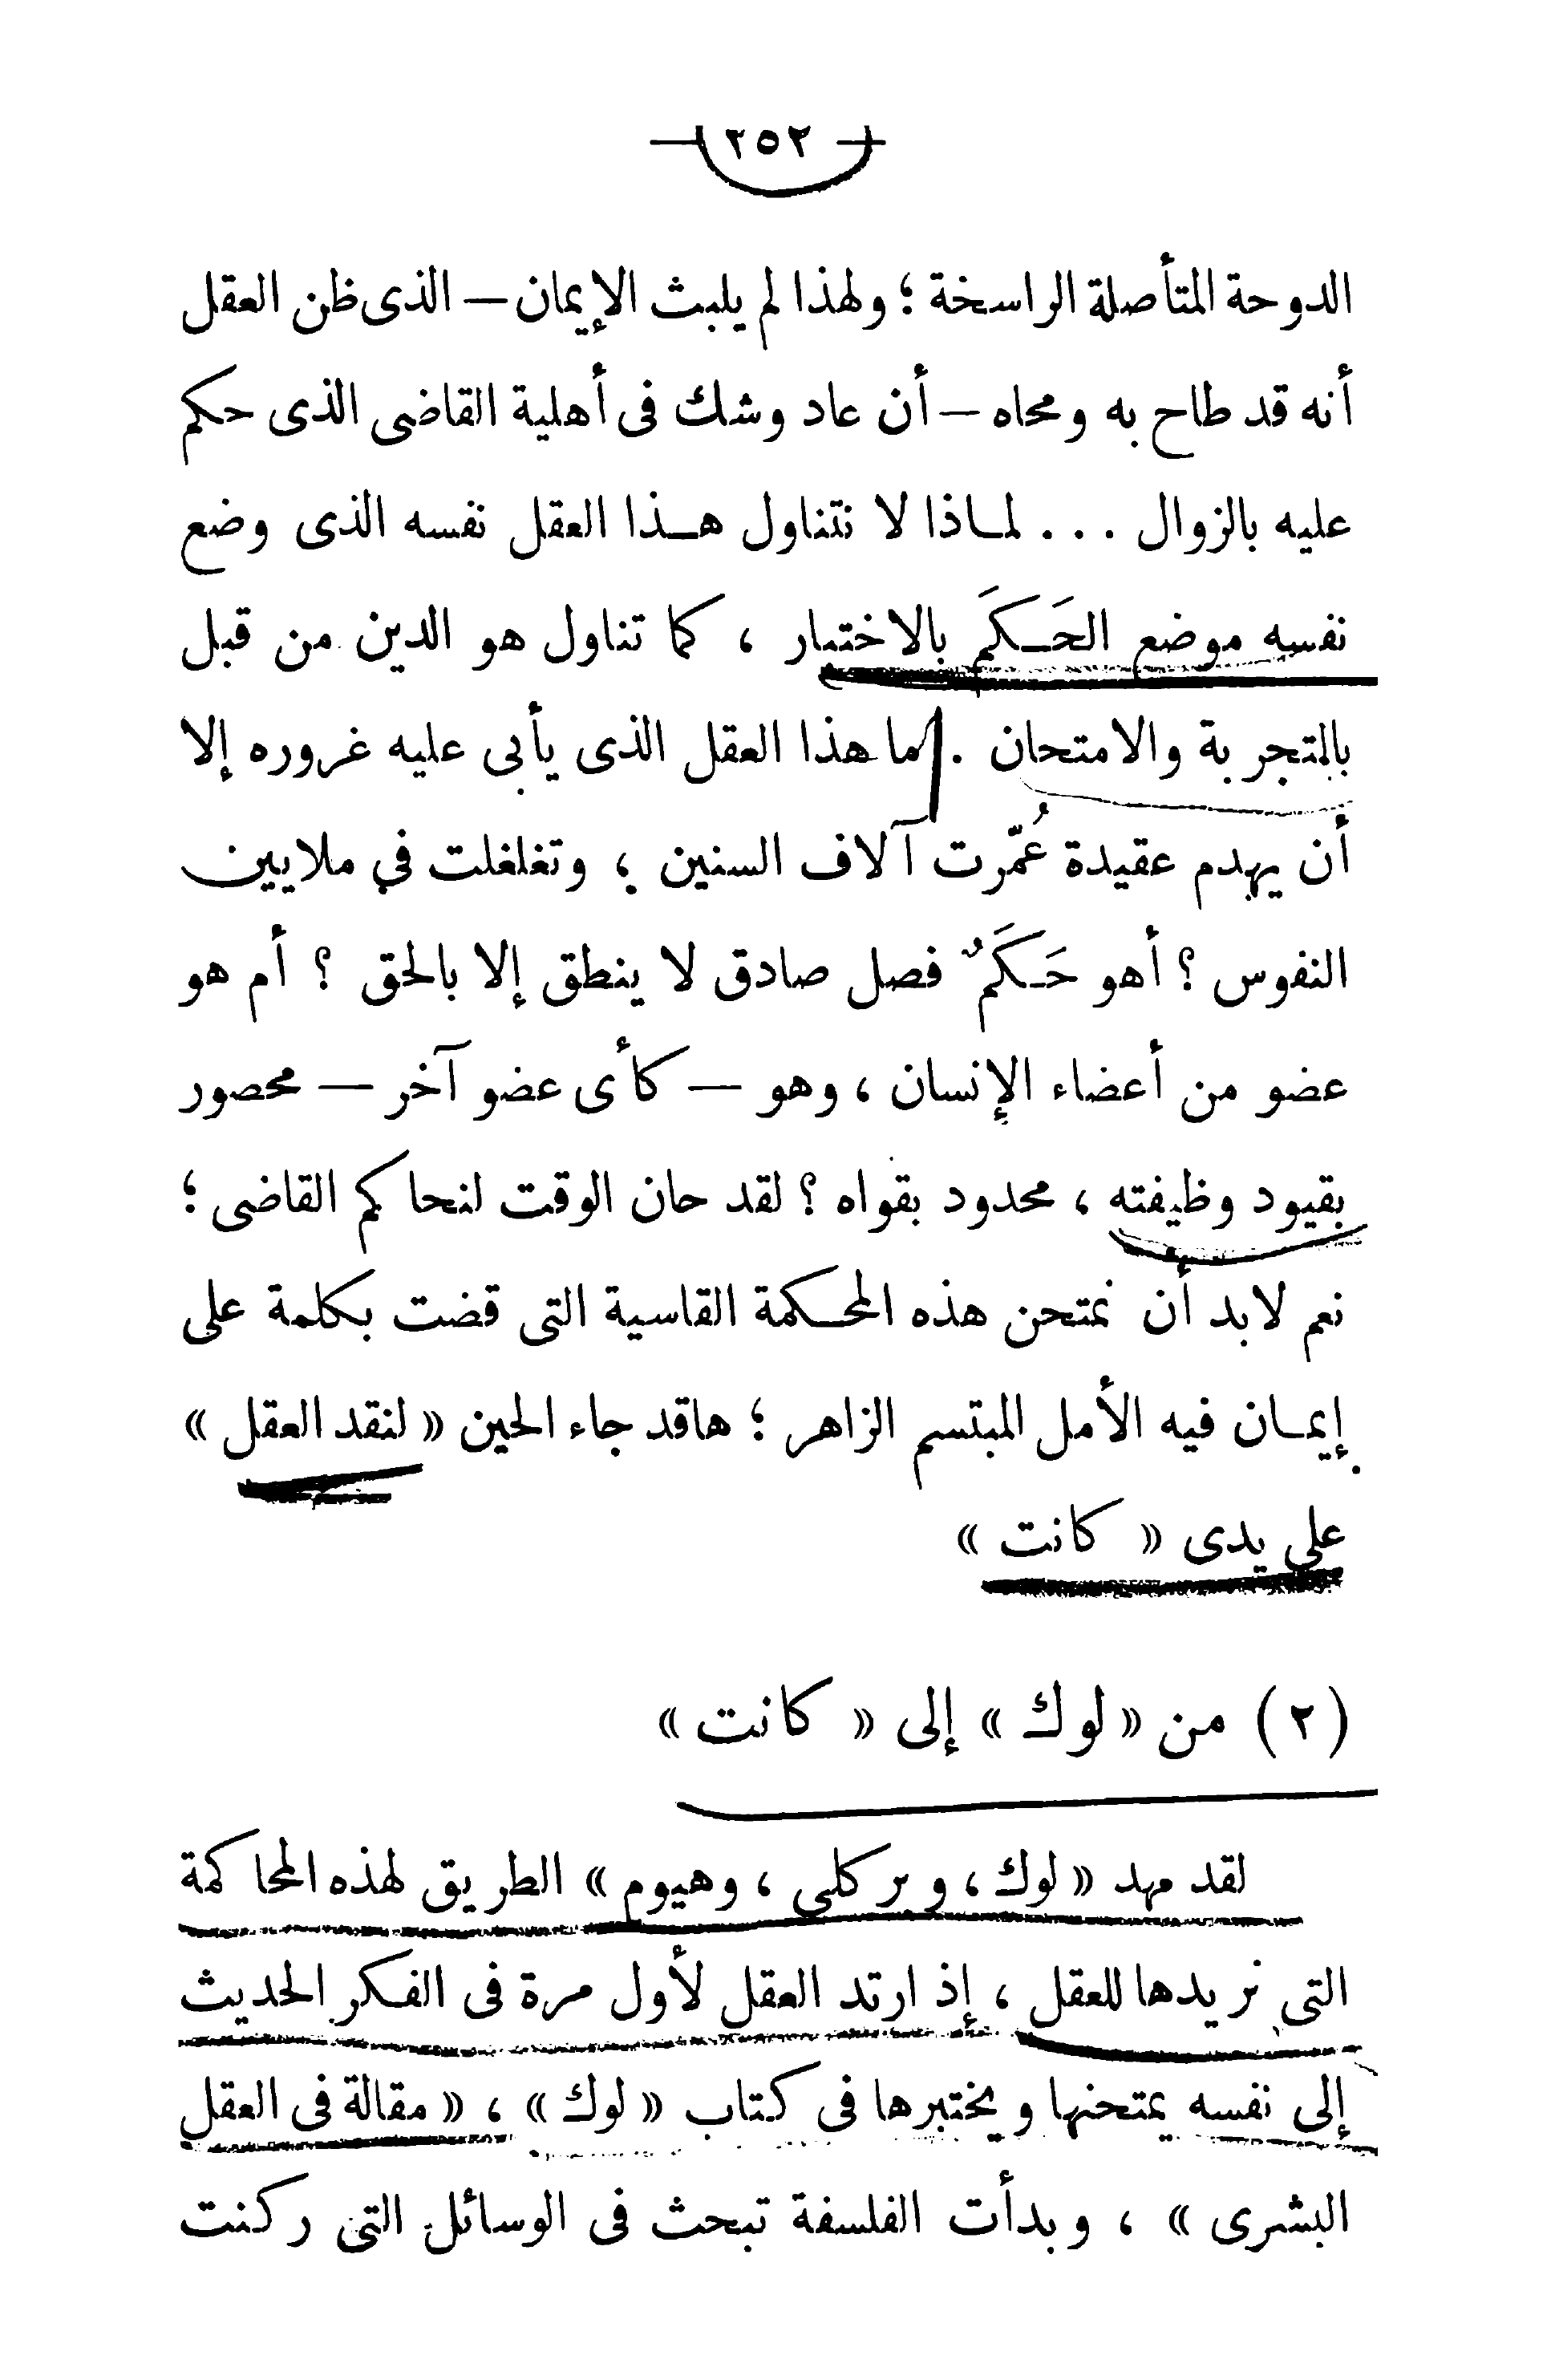 — ٢٥٢ —
الدوحة المتأصلة الراسخة ؛ ولهذا لم يلبث الإيمان — الذى ظن العقل
أنه قد طاح به ومحاه — أن عاد وشك فى أهلية القاضى الذى حكم
عليه بالزوال . . . لمـاذا لا نتناول هـذا العقل نفسه الذى وضع
نفسه موضع الحَـكَمَ بالاختبار ، كما تناول هو الدين من قبل
بالتجربة والامتحان . ما هذا العقل الذى يأبى عليه غروره إلا
أن يهدم عقيدة عُمّرت آلاف السنين ، وتغلغلت في ملايين
النفوس ؟ أهو حَـكَمٌ فصل صادق لا ينطق إلا بالحق ؟ أم هو
عضو من أعضاء الإنسان ، وهو — كأى عضو آخر — محصور
بقيود وظيفته ، محدود بقواه ؟ لقد حان الوقت لنحاكم القاضى ؛
نعم لابد أن نمتحن هذه المحـكمة القاسية التى قضت بكلمة على
إيمـان فيه الأمل المبتسم الزاهر ؛ هاقد جاء الحين « لنقد العقل »
على يدى « كانت »
(٢) من « لوك » إلى « كانت »
لقد مهد « لوك ، وبركلى ، وهيوم » الطريق لهذه المحاكمة
التى نريدها للعقل ، إذ ارتد العقل لأول مرة فى الفـكر الحديث
إلى نفسه يمتحنها ويختبرها فى كتاب « لوك » ، « مقالة فى العقل
البشرى » ، وبدأت الفلسفة تبحث فى الوسائل التى ركنت